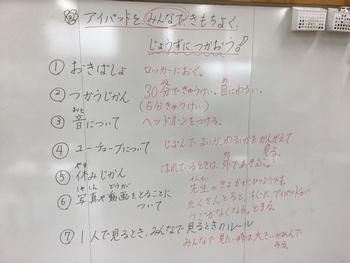 アイパッドを みんなで きもちよく、
じょうずにつかおう!
① おきばしょ ロッカーにおく。
② つかうじかん 30分できゅうけい。目にわるい。
(5分きゅうけい)
③ 音について ヘッドホンをつける。
おと
④ ユーチューブについて じぶんで よいか、わるいかを かんがえて
見る。
はれているときは、外であそぶ。
⑤ 休みじかん
やす
⑥ 写真や動画をとることに
しゃしん どうが
ついて
先生の きょかが ひつようです。
せんせい
たくさんとると、すぐに、アイパッドが
うごかなくなる。とまる。
⑦ 1人で見るとき、みんなで見るときのルール
みんなで 見たい時は 大きいがめんで
みる。